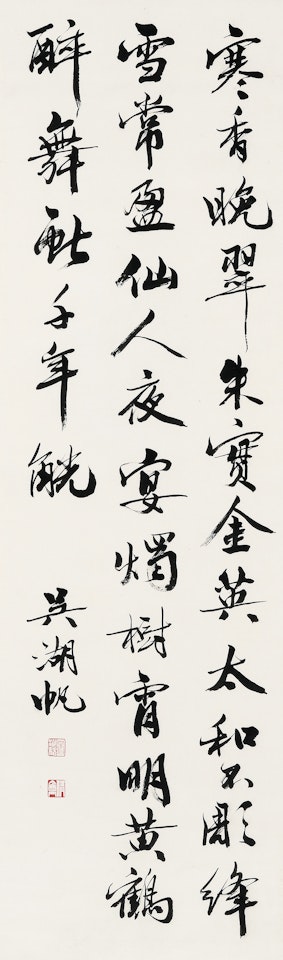 寒香晚翠朱實金英太和不彫絳
雪常盈仙人夜宴燭樹霄明黄鶴
醉舞獻千年觥
吳湖帆